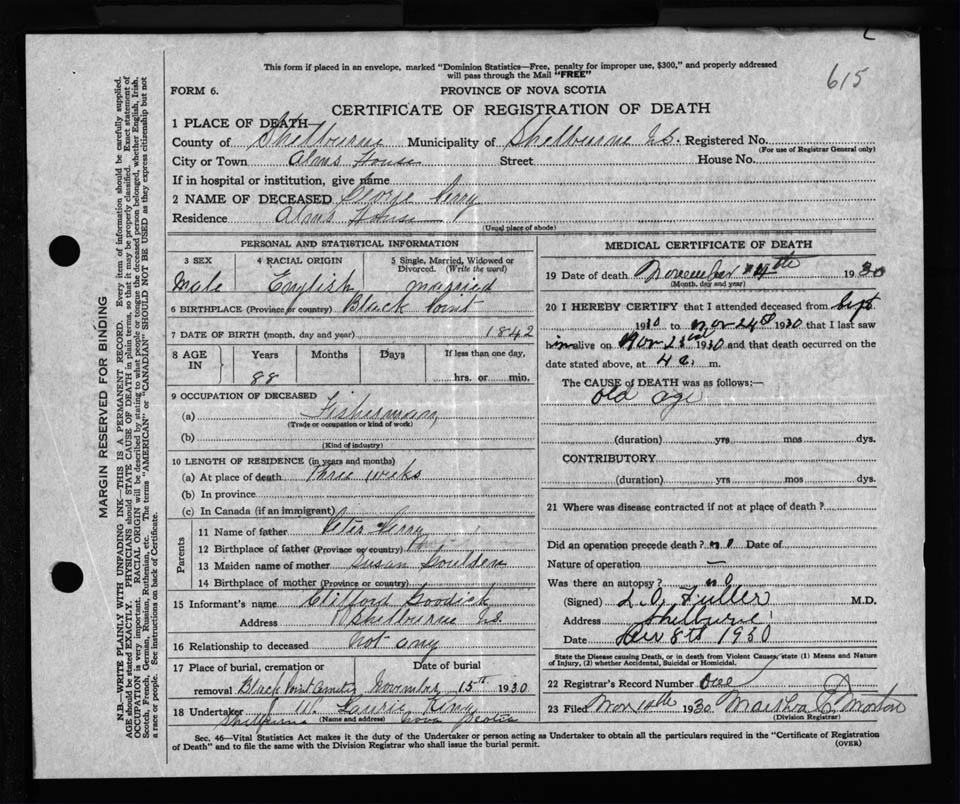 615
This form if placed in an envelope, marked "Dominion Statistics—Free, penalty for improper use, $300," and properly addressed
will pass through the Mail "FREE"
FORM 6.
PROVINCE OF NOVA SCOTIA
CERTIFICATE OF REGISTRATION OF DEATH
1 PLACE OF DEATH
County of Shelburne Municipality of Shelburne N.S. Registered No.
(For use of Registrar General only)
City or Town Alms House Street House No.
If in hospital or institution, give name
2 NAME OF DECEASED George Perry
Residence Alms House
(Usual place of abode)
PERSONAL AND STATISTICAL INFORMATION
3 SEX 4 RACIAL ORIGIN 5 Single, Married, Widowed or
Divorced. (Write the word)
Male English married
6 BIRTHPLACE (Province or country) Black Point
7 DATE OF BIRTH (month, day and year) 1842
8 AGE IN Years Months Days If less than one day,
88 hrs. or min.
9 OCCUPATION OF DECEASED
(a) Fisherman
(Trade or occupation or kind of work)
(b)
(Kind of industry)
10 LENGTH OF RESIDENCE (in years and months)
(a) At place of death Three weeks
(b) In province
(c) In Canada (if an immigrant)
Parents
11 Name of father Peter Perry
12 Birthplace of father (Province or country)
13 Maiden name of mother Susan
14 Birthplace of mother (Province or country)
15 Informant's name Clifford Goodick
Address Shelburne N.S.
16 Relationship to deceased not any
17 Place of burial, cremation or Date of burial
removal Black Point November 15th 1930
18 Undertaker Laurie King
Shelburne (Name and address) Nova Scotia
MEDICAL CERTIFICATE OF DEATH
19 Date of death November 1930
(Month, day and year)
20 I HEREBY CERTIFY that I attended deceased from Sept
1930 to Nov 1930 that I last saw
him alive on Nov 1930 and that death occurred on the
date stated above, at 4 a. m.
The CAUSE of DEATH was as follows:—
old age
(duration) yrs mos dys.
CONTRIBUTORY
(duration) yrs mos dys.
21 Where was disease contracted if not at place of death?
Did an operation precede death? no Date of
Nature of operation —
Was there an autopsy? no
(Signed) L.O. Fuller M.D.
Address Shelburne
Date 1930
State the Disease causing Death, or in death from Violent Causes, state (1) Means and
Nature of Injury, (2) whether Accidental, Suicidal or Homicidal.
22 Registrar's Record Number One
23 Filed Nov 1930 Martha E. Morton
(Division Registrar)
Sec. 46—Vital Statistics Act makes it the duty of the Undertaker or person acting as Undertaker to obtain all the particulars required in the "Certificate of Registration
of Death" and to file the same with the Division Registrar who shall issue the burial permit.
(OVER)
MARGIN RESERVED FOR BINDING
N.B.—WRITE PLAINLY WITH UNFADING INK—THIS IS A PERMANENT RECORD. Every item of information should be carefully supplied.
AGE should be stated EXACTLY. PHYSICIANS should STATE CAUSE OF DEATH in plain terms, so that it may be properly classified. Exact statement of
OCCUPATION is very important. RACIAL ORIGIN will be described by stating to what people or tongue the deceased person belonged, whether English, Irish,
Scotch, French, German, Russian, Ruthenian, etc. The terms "AMERICAN" or "CANADIAN" SHOULD NOT BE USED as they express citizenship but not
a race or people. See instructions on back of Certificate.